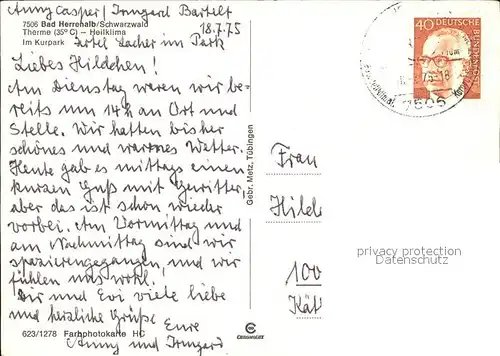 Anny Casper / Irmgard Bartelt
7506 Bad Herrenalb/Schwarzwald
18.7.75
Therme (35° C) – Heilklima
Im Kurpark
Hotel Lacher im Park
Liebes Hildchen!
Am Dienstag waren wir be-
reits um 14 h an Ort und
Stelle. Wir hatten bisher
schönes und warmes Wetter.
Heute gab es mittags einen
kurzen Guß mit Gewitter,
aber das ist schon wieder
vorbei. Am Vormittag und
am Nachmittag sind wir
spazierengegangen, und wir
fühlen uns wohl.
Dir und Evi viele liebe
und herzliche Grüße
Eure
Anny und Irmgard
623/1278 Farbphotokarte HC
Gebr. Metz, Tübingen
COPYRIGHT
40 DEUTSCHE
BUNDESPOST
7506
Frau
Hilde
100
Kät
privacy protection
Datenschutz